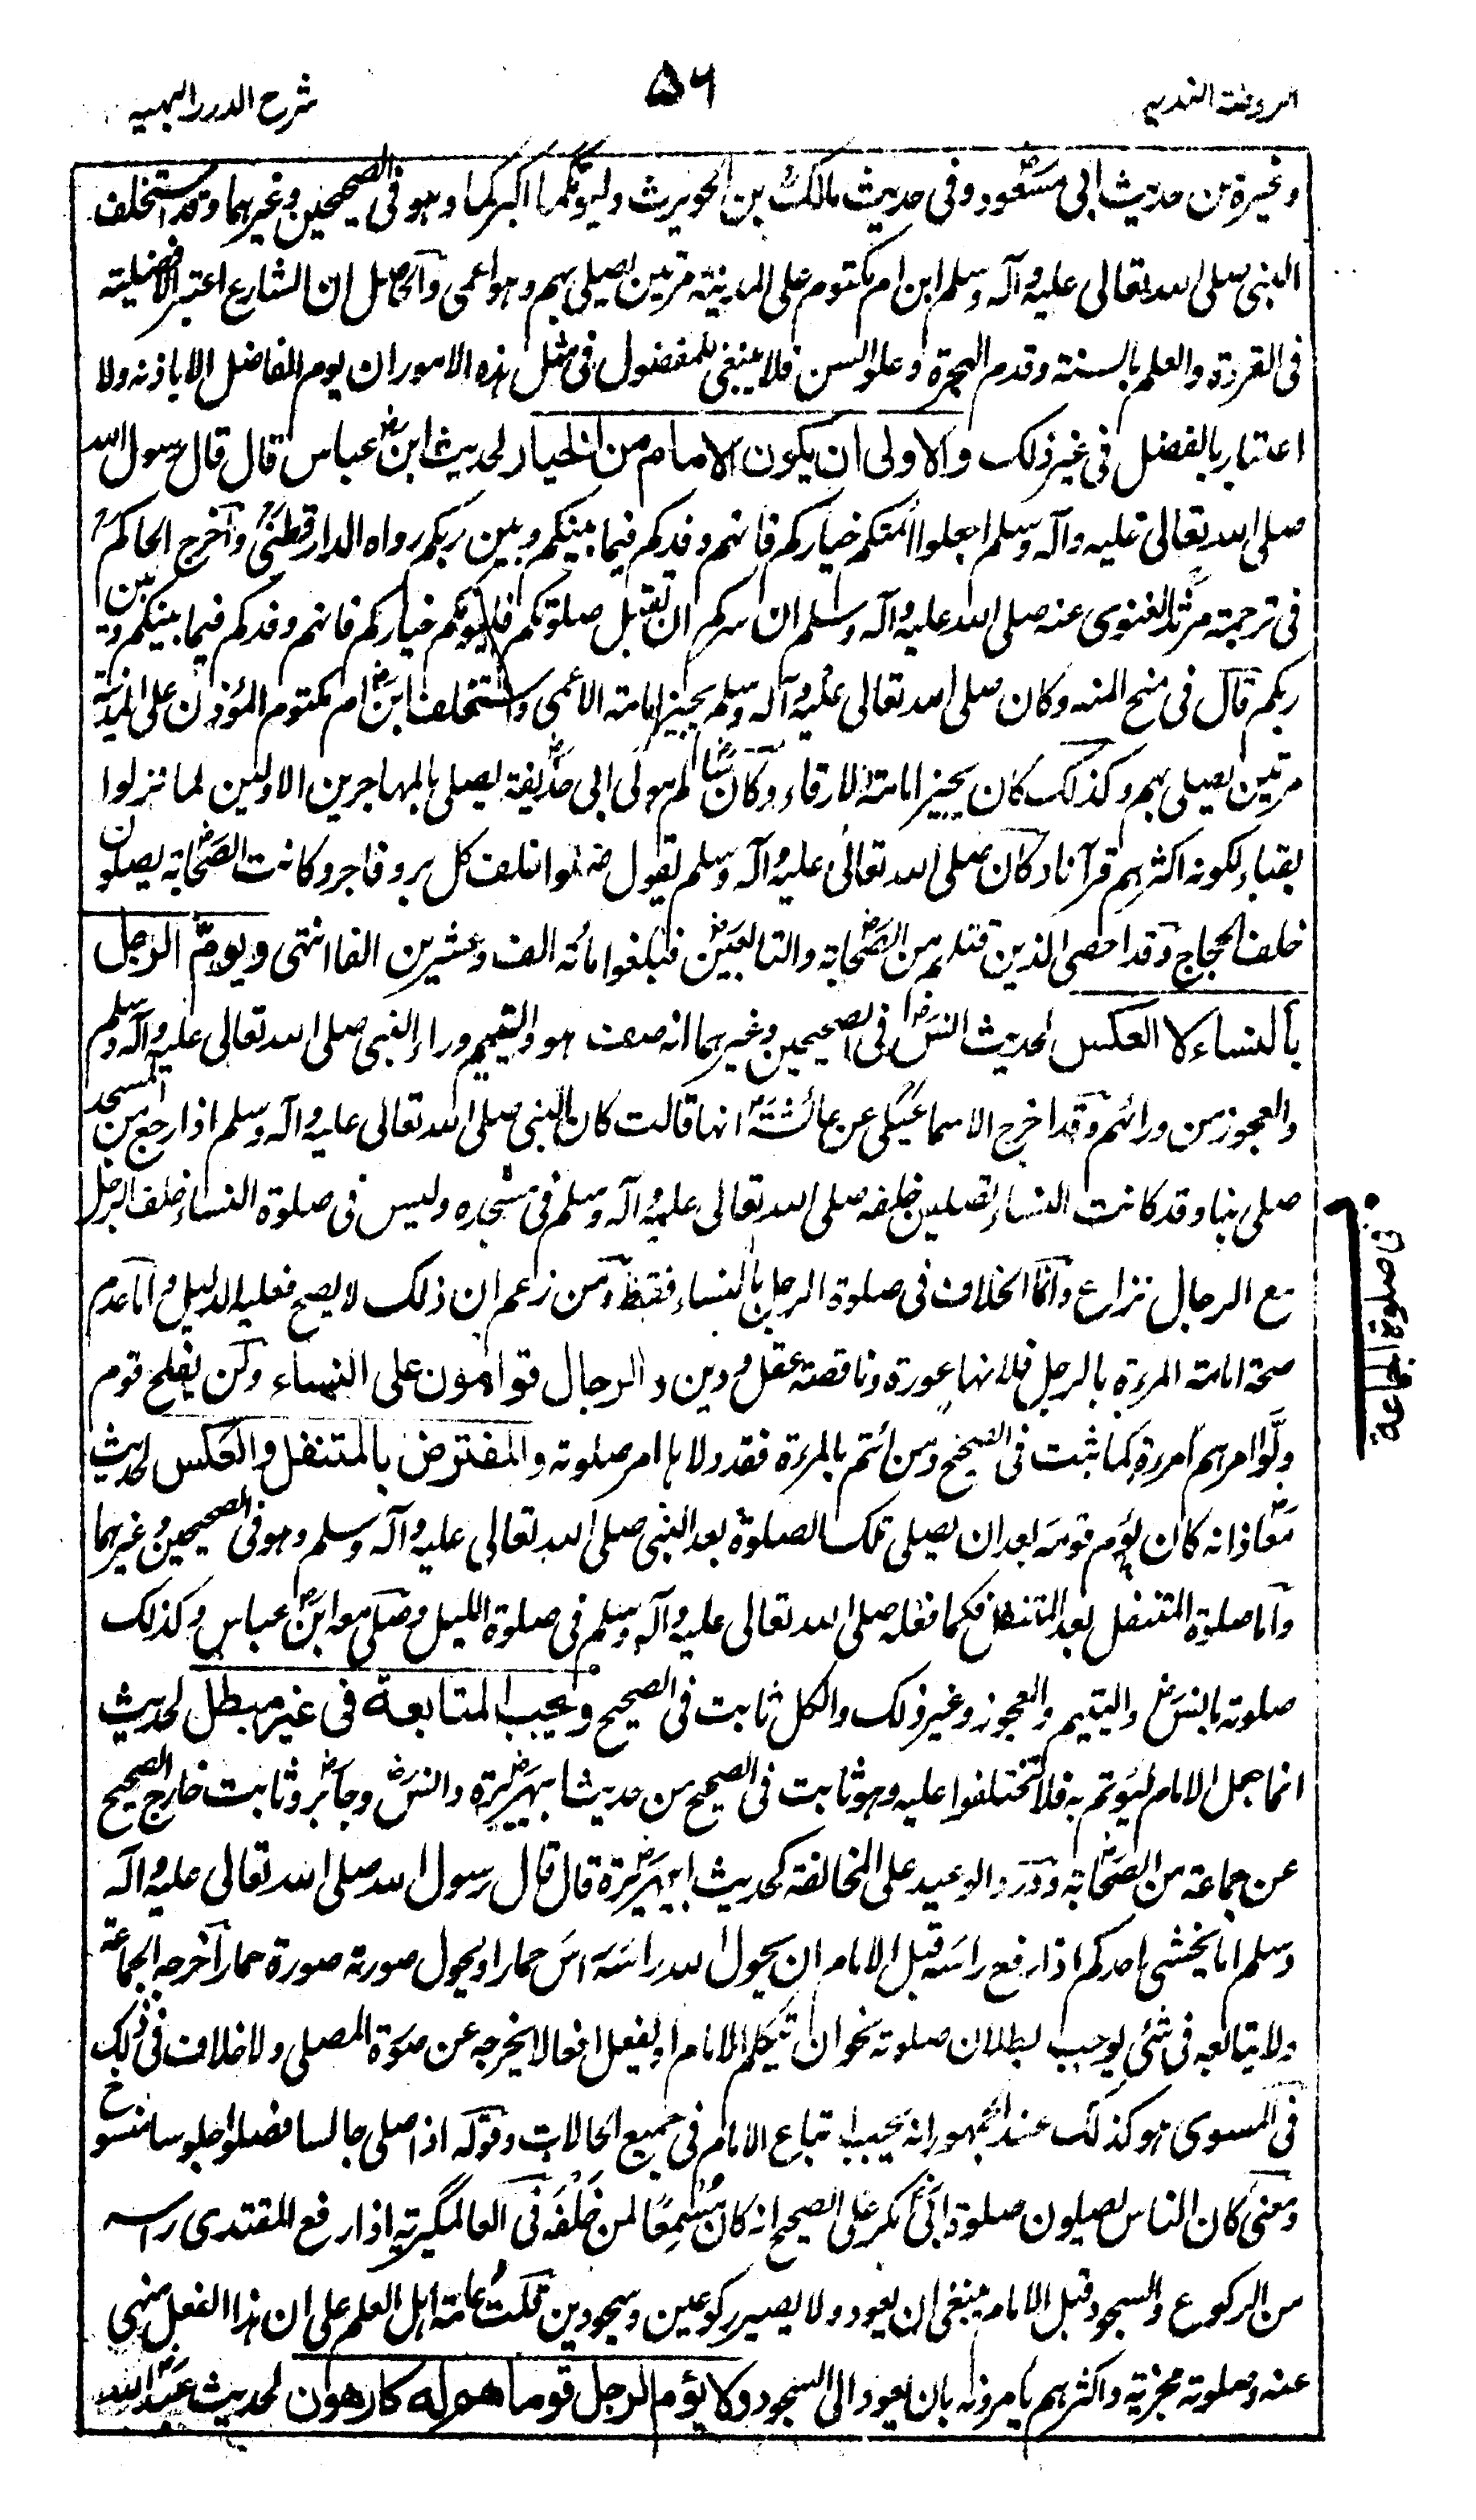 الروضة الندية
۵۶
شرح الدرر البهية
وغيره من حديث ابى مسعود وفى حديث مالك بن الحويرث وليؤمكما اكبركما وهو فى الصحيحين وغيرهما وقد استخلف
النبى صلى الله تعالى عليه وآله وسلم ابن ام مكتوم على المدينة مرتين يصلى بهم وهو اعمى والحاصل ان الشارع اعتبر الافضلية
فى القراءة والعلم بالسنة وقدم الهجرة وعلو السن فلا ينبغى للمفضول فى مثل هذه الامور ان يوم الفاضل الا باذنه ولا
اعتبار بالفضل فى غير ذلك والاولى ان يكون الامام من الخيار لحديث ابن عباس قال قال رسول الله
صلى الله تعالى عليه وآله وسلم اجعلوا ائمتكم خياركم فانهم وفدكم فيما بينكم وبين ربكم رواه الدارقطنى وآخرج الحاكم
فى ترجمة مرثد الغنوى عنه صلى الله عليه وآله وسلم ان سركم ان تقبل صلوتكم فليؤمكم خياركم فانهم وفدكم فيما بينكم وبين
ربكم قال فى منح المنه وكان صلى الله تعالى عليه وآله وسلم يجيز امامة الاعمى واستخلف ابن ام مكتوم المؤذن على المدينة
مرتين يصلى بهم وكذلك كان يجيز امامة الارقاء وكان سالم مولى ابى حذيفة يصلى بالمهاجرين الاولين لما نزلوا
بقباء لكونه اكثرهم قرآنا وكان صلى الله تعالى عليه وآله وسلم يقول صلوا خلف كل بر وفاجر وكانت الصحابة يصلون
خلف الحجاج وقد احصى الذين قتلهم من الصحابة والتابعين فبلغوا مائة الف وعشرين الفا انتهى ويؤم الرجل
بالنساء لا العكس لحديث انس فى الصحيحين وغيرهما انه صف هو واليتيم وراء النبى صلى الله تعالى عليه وآله وسلم
والعجوز من ورائهم وقد اخرج الاسماعيلى عن عائشة انها قالت كان النبى صلى الله تعالى عليه وآله وسلم اذا رجع من المسجد
صلى بنا وقد كانت النساء يصلين خلفه صلى الله تعالى عليه وآله وسلم فى مسجده وليس فى صلوة النساء خلف الرجل
مع الرجال نزاع وانما الخلاف فى صلوة الرجل بالنساء فقط ومن زعم ان ذلك لا يصح فعليه الدليل واما عدم
صحة امامة المرءة بالرجل فلانها عورة وناقصة عقل ودين والرجال قوامون على النساء ولن يفلح قوم
ولوا امرهم امرءة كما ثبت فى الصحيح ومن ائتم بالمرءة فقد ولاها امر صلوته والمفترض بالمتنفل والعكس لحديث
معاذ انه كان يؤم قومه بعد ان يصلى تلك الصلوة بعد النبى صلى الله تعالى عليه وآله وسلم وهو فى الصحيحين وغيرهما
واما صلوة المتنفل بعد المتنفل فكما فعله صلى الله تعالى عليه وآله وسلم فى صلوة الليل وصلى معه ابن عباس وكذلك
صلوته بانس واليتيم والعجوز وغير ذلك والكل ثابت فى الصحيح وتجب المتابعة فى غير مبطل لحديث
انما جعل الامام ليوتم به فلا تختلفوا عليه وهو ثابت فى الصحيح من حديث ابيهريرة وانس وجابر وثابت خارج الصحيح
عن جماعة من الصحابة وورد الوعيد على المخالفة كحديث ابيهريرة قال قال رسول الله صلى الله تعالى عليه وآله
وسلم اما يخشى احدكم اذا رفع راسه قبل الامام ان يحول الله راسه راس حمار او يحول صورته صورة حمار آخرجه الجماعة
ولا يتابعه فى شئ يوجب بطلان صلوته نحو ان يتكلم الامام او يفعل افعالا يخرجه عن صورة المصلى ولا خلاف فى ذلك
فى المسوى هو كذلك عند الجمهور انه يجب اتباع الامام فى جميع الحالات وقوله اذا صلى جالسا فصلوا جلوسا منسوخ
ومعنى كان الناس يصلون صلوة ابى بكر على الصحيح انه كان مُسْمِعًا لمن خَلْفَه فى العالمگيرية اذا رفع المقتدى راسه
من الركوع والسجود قبل الامام ينبغى ان يعود ولا يصير ركوعين وسجودين قلت عامة اهل العلم على ان هذا الفعل منهى
عنه وصلوته مجزية واكثرهم يامرونه بان يعود الى السجود ولا يؤم الرجل قوما هم له كارهون لحديث عبد الله
ف صلوة الجماعة